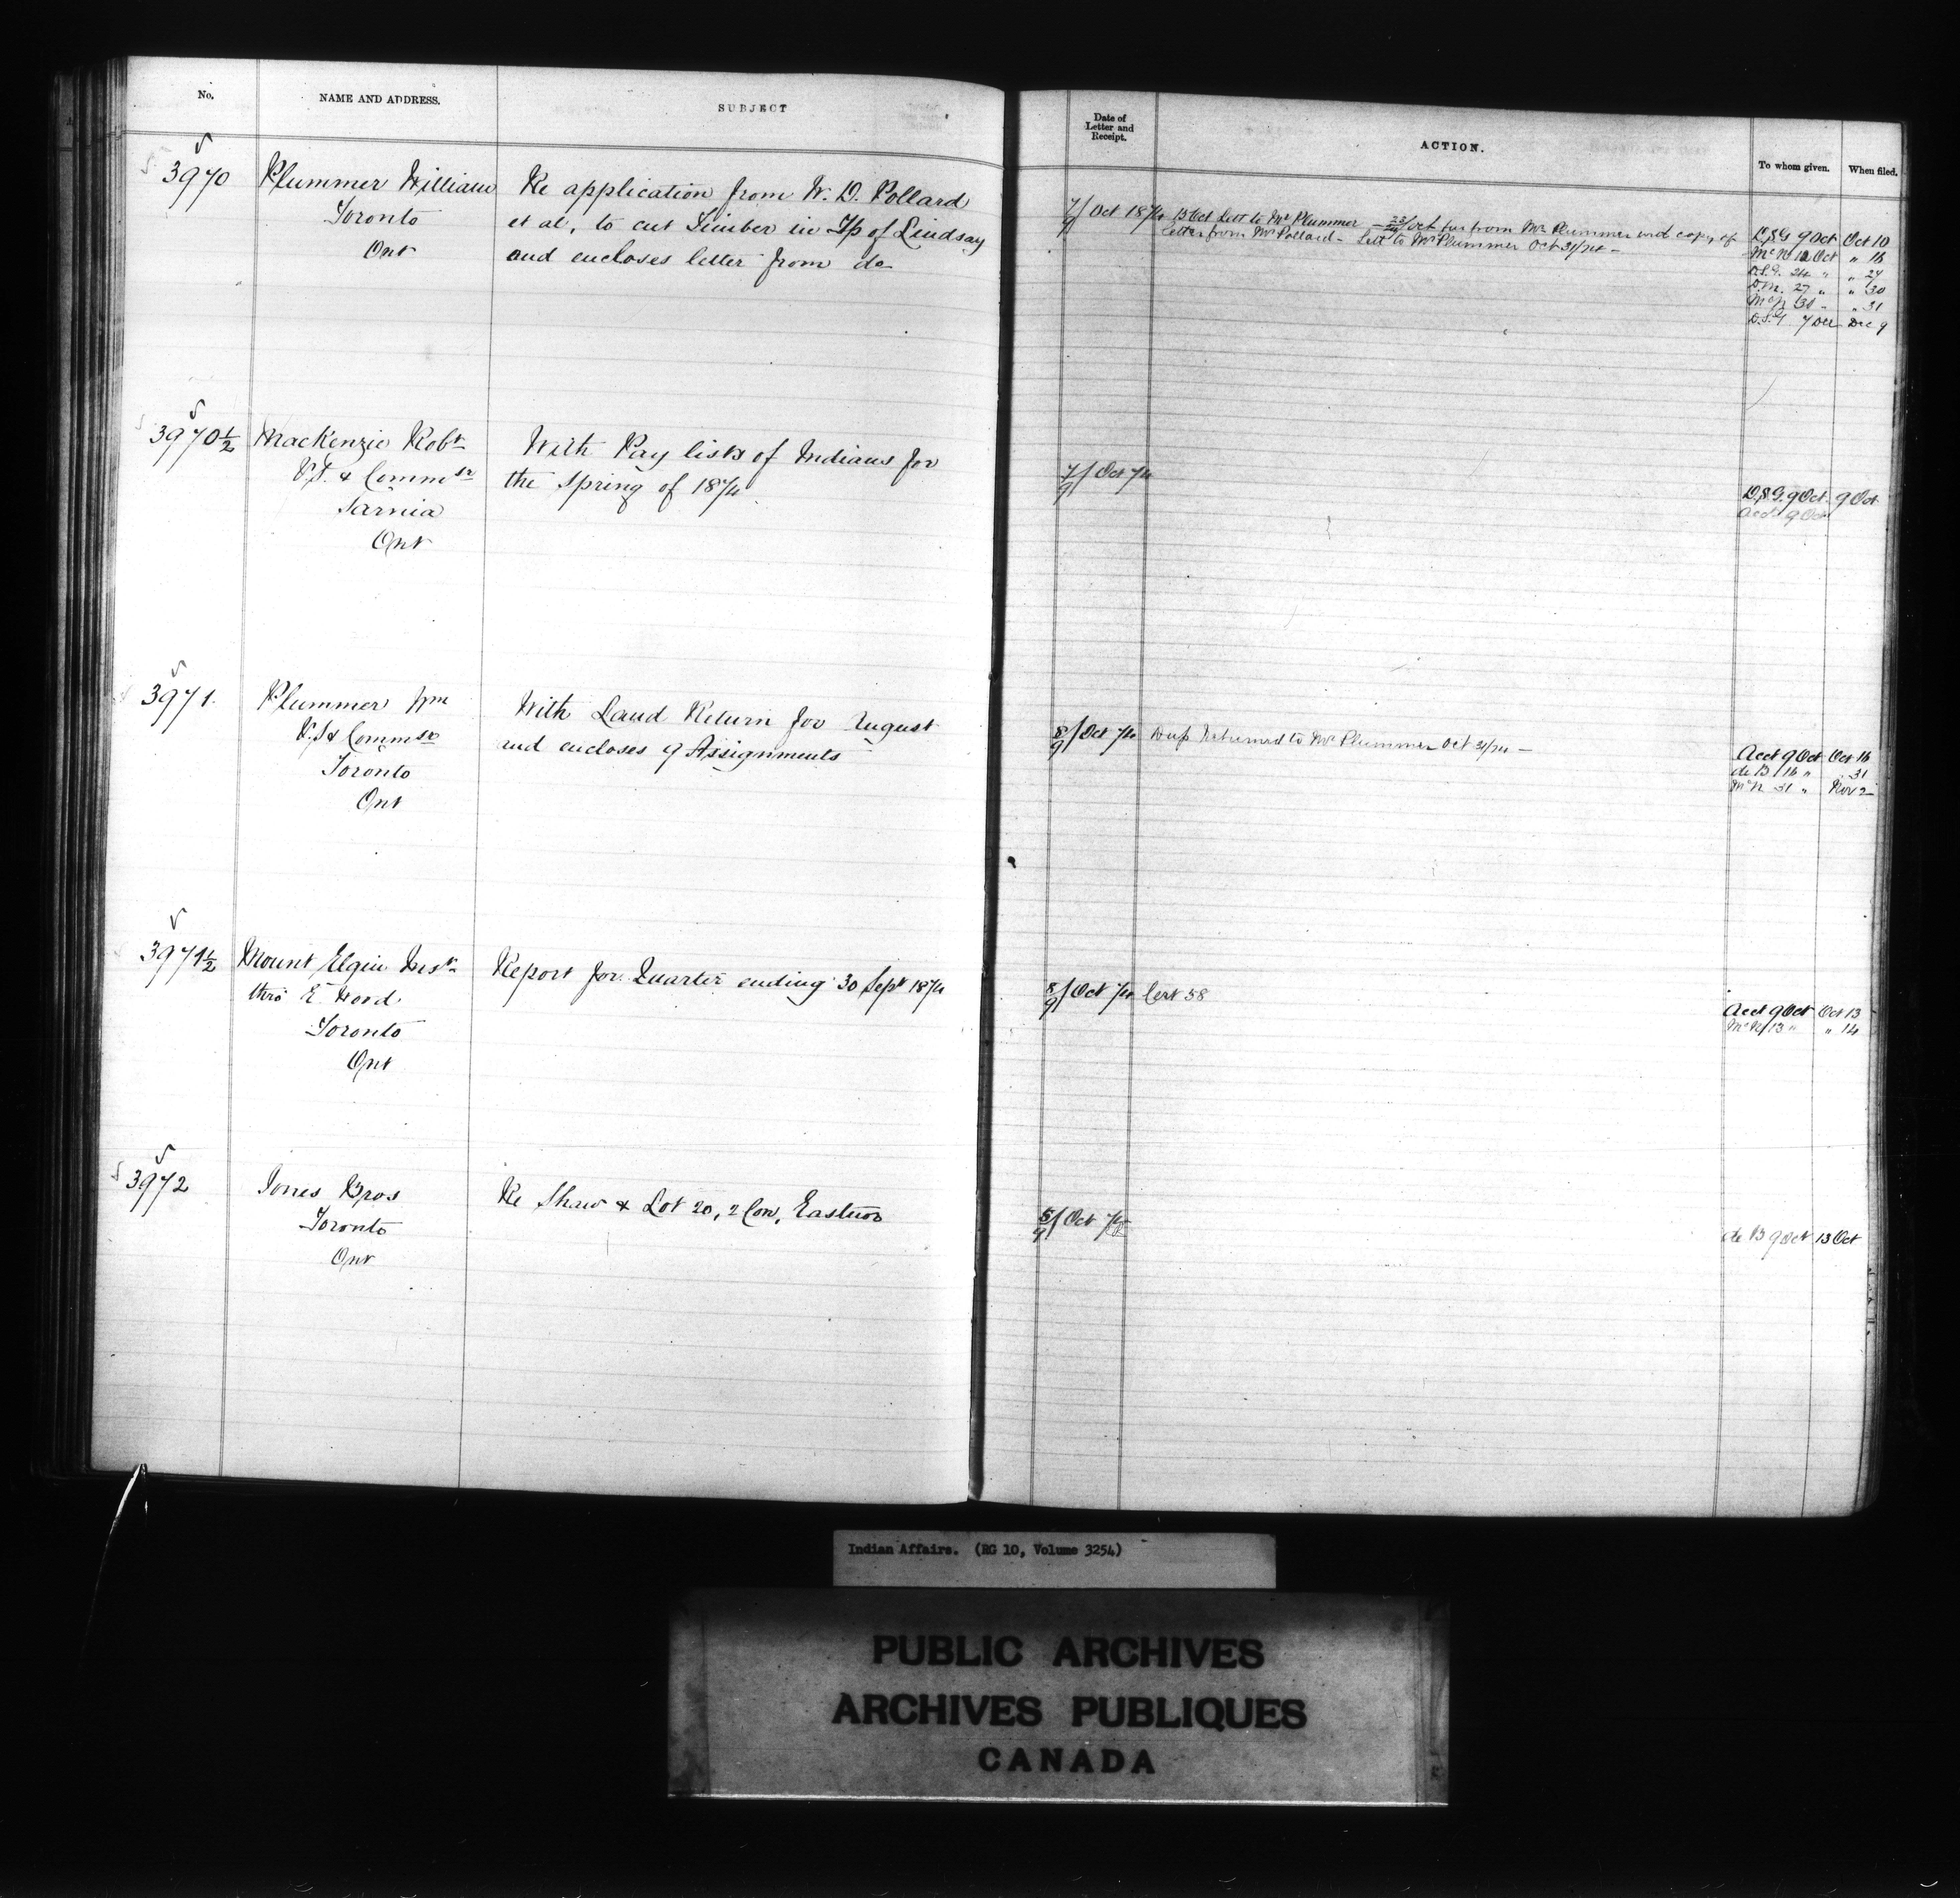 No.
NAME AND ADDRESS.
SUBJECT
Date of
Letter and
Receipt.
ACTION.
To whom given.
When filed.
3970
Plummer William
Toronto
Ont
Re application from W. D. Pollard
et al, to cut Timber in Tp of Lindsay
and encloses letter from do
7/9 Oct 1874
13 Oct Lett to Mr Plummer — 23/24 Oct fur from Mr Plummer with copy of
letter from Mr Pollard — Lett to Mr Plummer Oct 31/74 —
D.S.G 9 Oct Oct 10
McN 12 Oct " 16
D.S.G. 24 " " 27
D.M. 27 " " 30
McN 30 " 31
D.S.G 7 Dec Dec 9
3970½
MacKenzie Robt
V.S. & Commsr
Sarnia
Ont
With Pay lists of Indians for
the Spring of 1874
7/9 Oct 74
D.S.G. 9 Oct 9 Oct
Acct 9 Oct
3971.
Plummer Wm
V.S & Commsr
Toronto
Ont
With Land Return for August
and encloses 9 Assignments
8/9 Oct 74
Dup Returned to Mr Plummer Oct 31/74 —
Acct 9 Oct Oct 16
de B 16 " " 31
McN 31 " Nov 2
3971½
Mount Elgin Inst
thro' E. Wood
Toronto
Ont
Report for Quarter ending 30 Sept 1874
8/9 Oct 74
Cert 58
Acct 9 Oct Oct 13
McN 13 " " 14
3972
Jones Bros
Toronto
Ont
Re Shaw & Lot 20, 2 Con, Eastnor
5/9 Oct 74
de B 9 Oct 13 Oct
Indian Affairs. (RG 10, Volume 3254)
PUBLIC ARCHIVES
ARCHIVES PUBLIQUES
CANADA